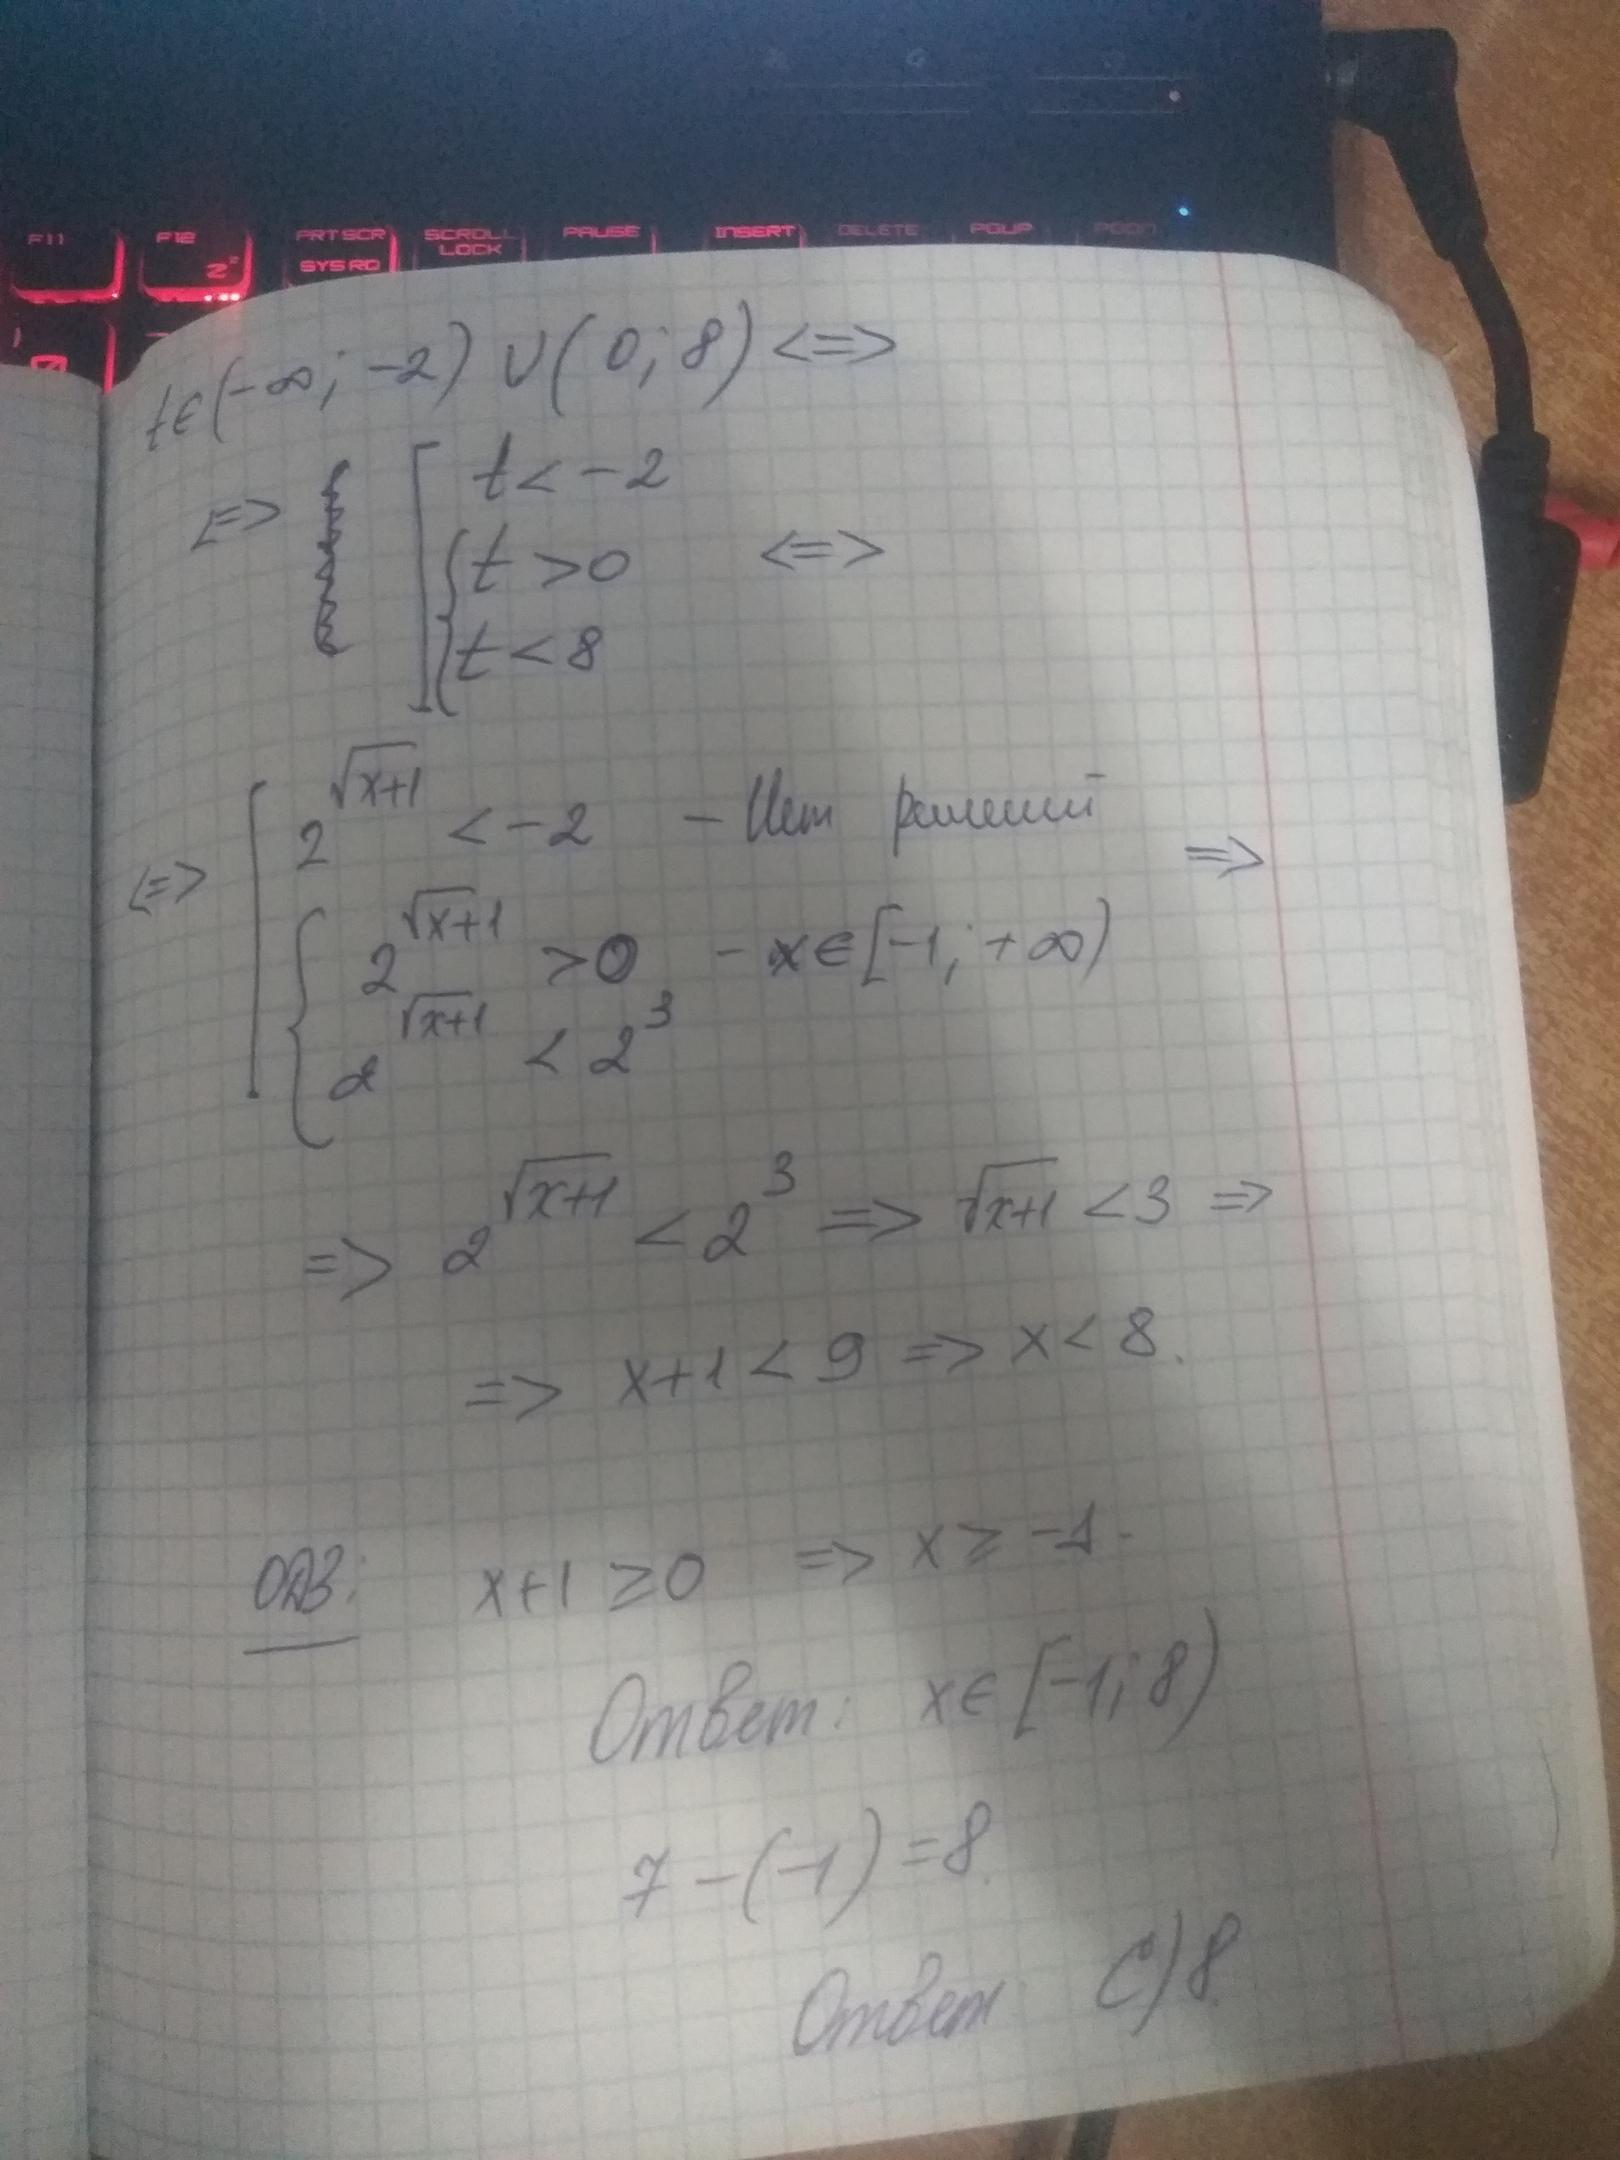 F11 F12 PRTSCR SCROLL PAUSE INSERT DELETE PGUP PGDN
SYSRQ LOCK
t∈(-∞; -2) ∪ (0; 8) <=>
<=> [ t < -2
{ t > 0 <=>
t < 8
<=> [ 2^√(x+1) < -2 - Нет решений =>
{ 2^√(x+1) > 0 - x∈[-1; +∞)
2^√(x+1) < 2^3
=> 2^√(x+1) < 2^3 => √(x+1) < 3 =>
=> x+1 < 9 => x < 8.
ОДЗ: x+1 ≥ 0 => x ≥ -1.
Ответ: x∈[-1; 8)
7 - (-1) = 8.
Ответ C) 8.